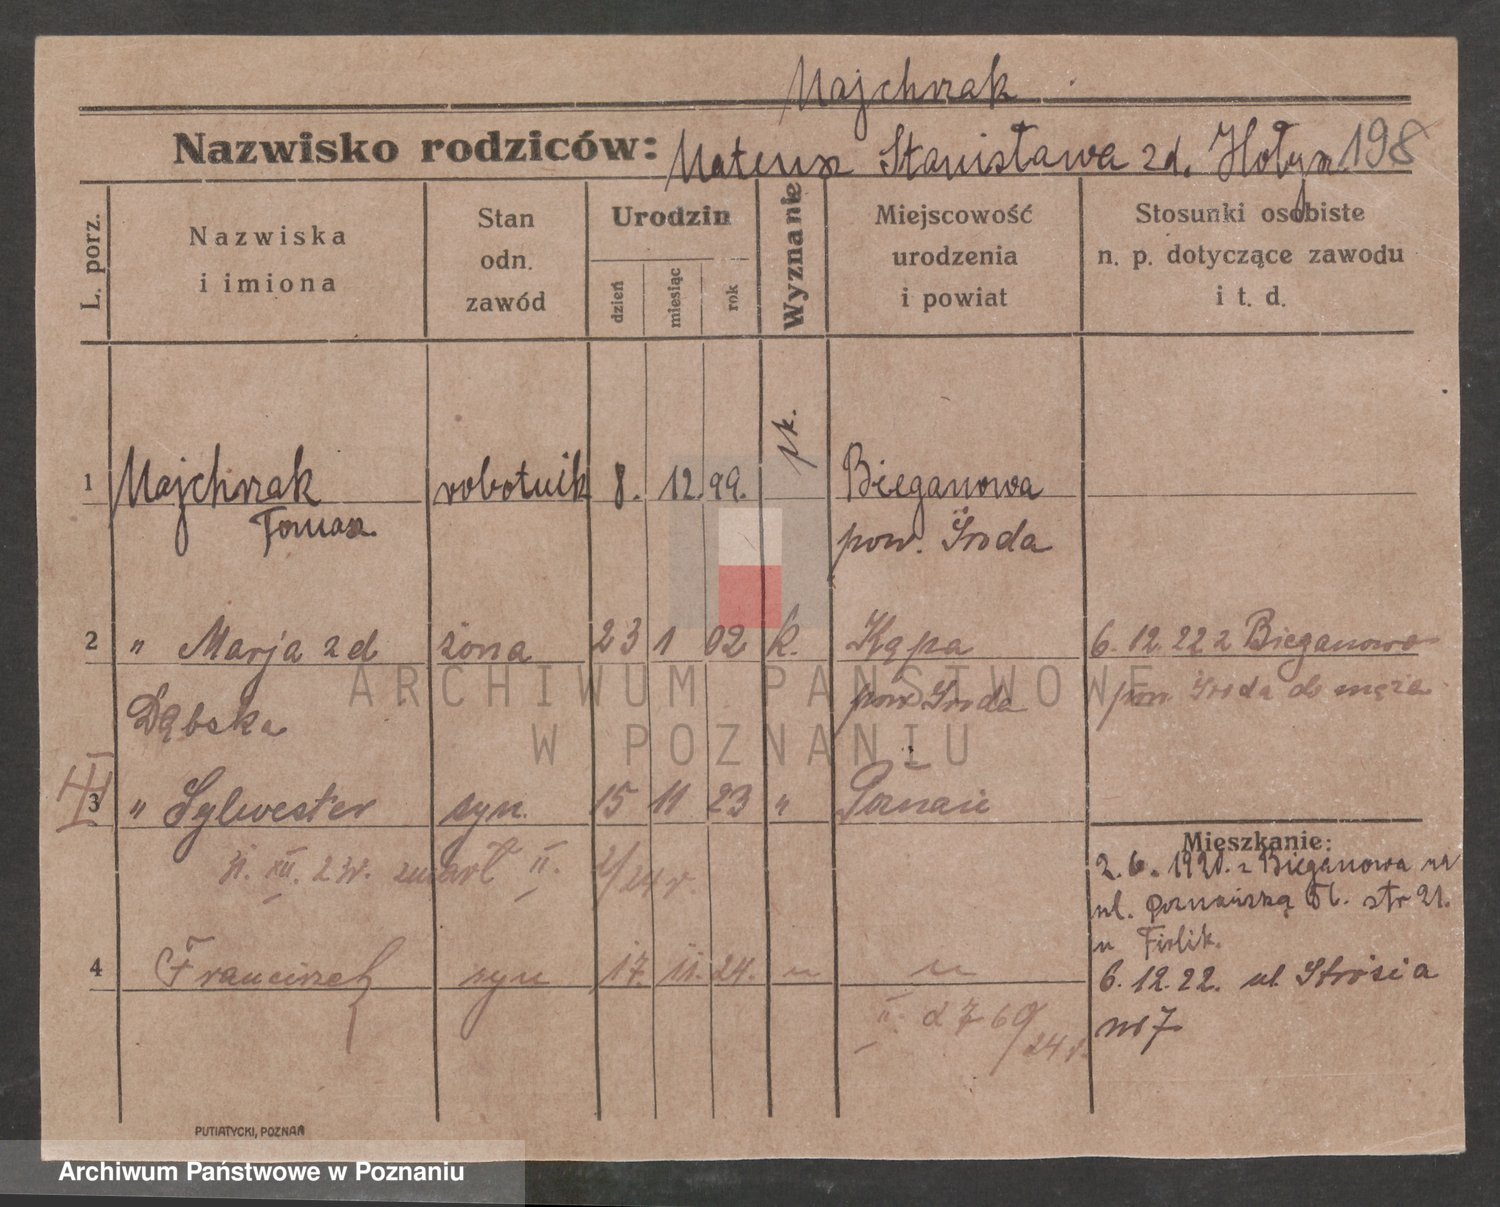 Majchrzak
Nazwisko rodziców: Mateusz Stanisława zd. Hołysz. 198
L. porz.
Nazwiska
i imiona
Stan
odn.
zawód
Urodzin
dzień
miesiąc
rok
Wyznanie
Miejscowość
urodzenia
i powiat
Stosunki osobiste
n. p. dotyczące zawodu
i t. d.
1 Majchrzak robotnik 8. 12. 99. rk. Bieganowa
Tomasz pow. Środa
2 " Marja zd żona 23 1 02 k. Kępa 6.12.22 z Bieganowo
Dąbska pow Środa pow. Środa do męża
3 " Sylwester syn. 15 11 23 " Poznań
II. 2/24 r.
Mieszkanie:
2.6.1920. z Bieganowa na
ul. poznańską str 21.
u Firlik.
4 Franciszek syn 17. 11. 24. " "
6.12.22. ul Strosia
nr 7
PUTIATYCKI, POZNAŃ
ARCHIWUM PAŃSTWOWE
W POZNANIU
Archiwum Państwowe w Poznaniu